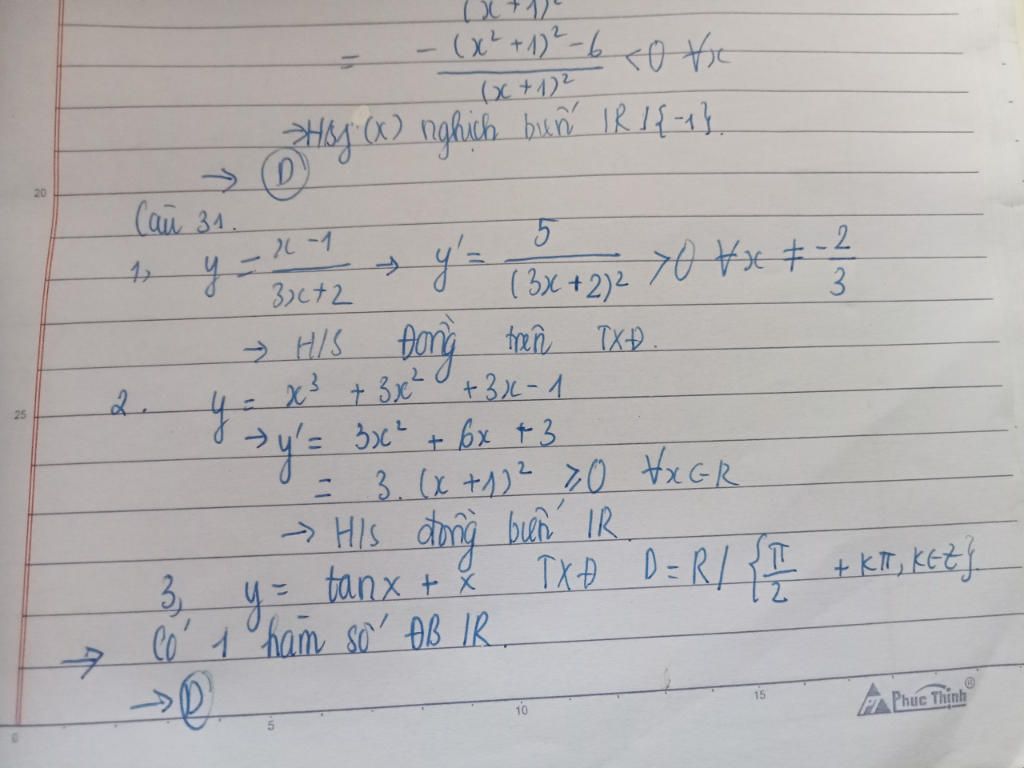 (x+1)²
= -(x²+1)²-6 / (x+1)² <0 ∀x
→ H/s y(x) nghịch biến IR \ {-1}.
→ D
Câu 31.
1, y = x-1 / 3x+2 → y' = 5 / (3x+2)² >0 ∀x ≠ -2/3
→ H/S Đồng trên TXĐ.
2. y = x³ + 3x² + 3x - 1
→ y' = 3x² + 6x + 3
= 3.(x+1)² ≥0 ∀x∈R
→ H/s đồng biến IR
3, y = tanx + x TXĐ D = R \ {π/2 + kπ, k∈Z}.
→ Có 1 hàm số ĐB IR.
→ D
20
25
0 5 10 15
Phuc Thinh®